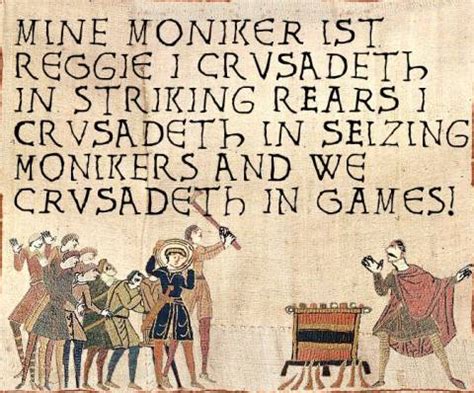 MINE MONIKER IST
REGGIE I CRVSADETH
IN STRIKING REARS I
CRVSADETH IN SEIZING
MONIKERS AND WE
CRVSADETH IN GAMES!